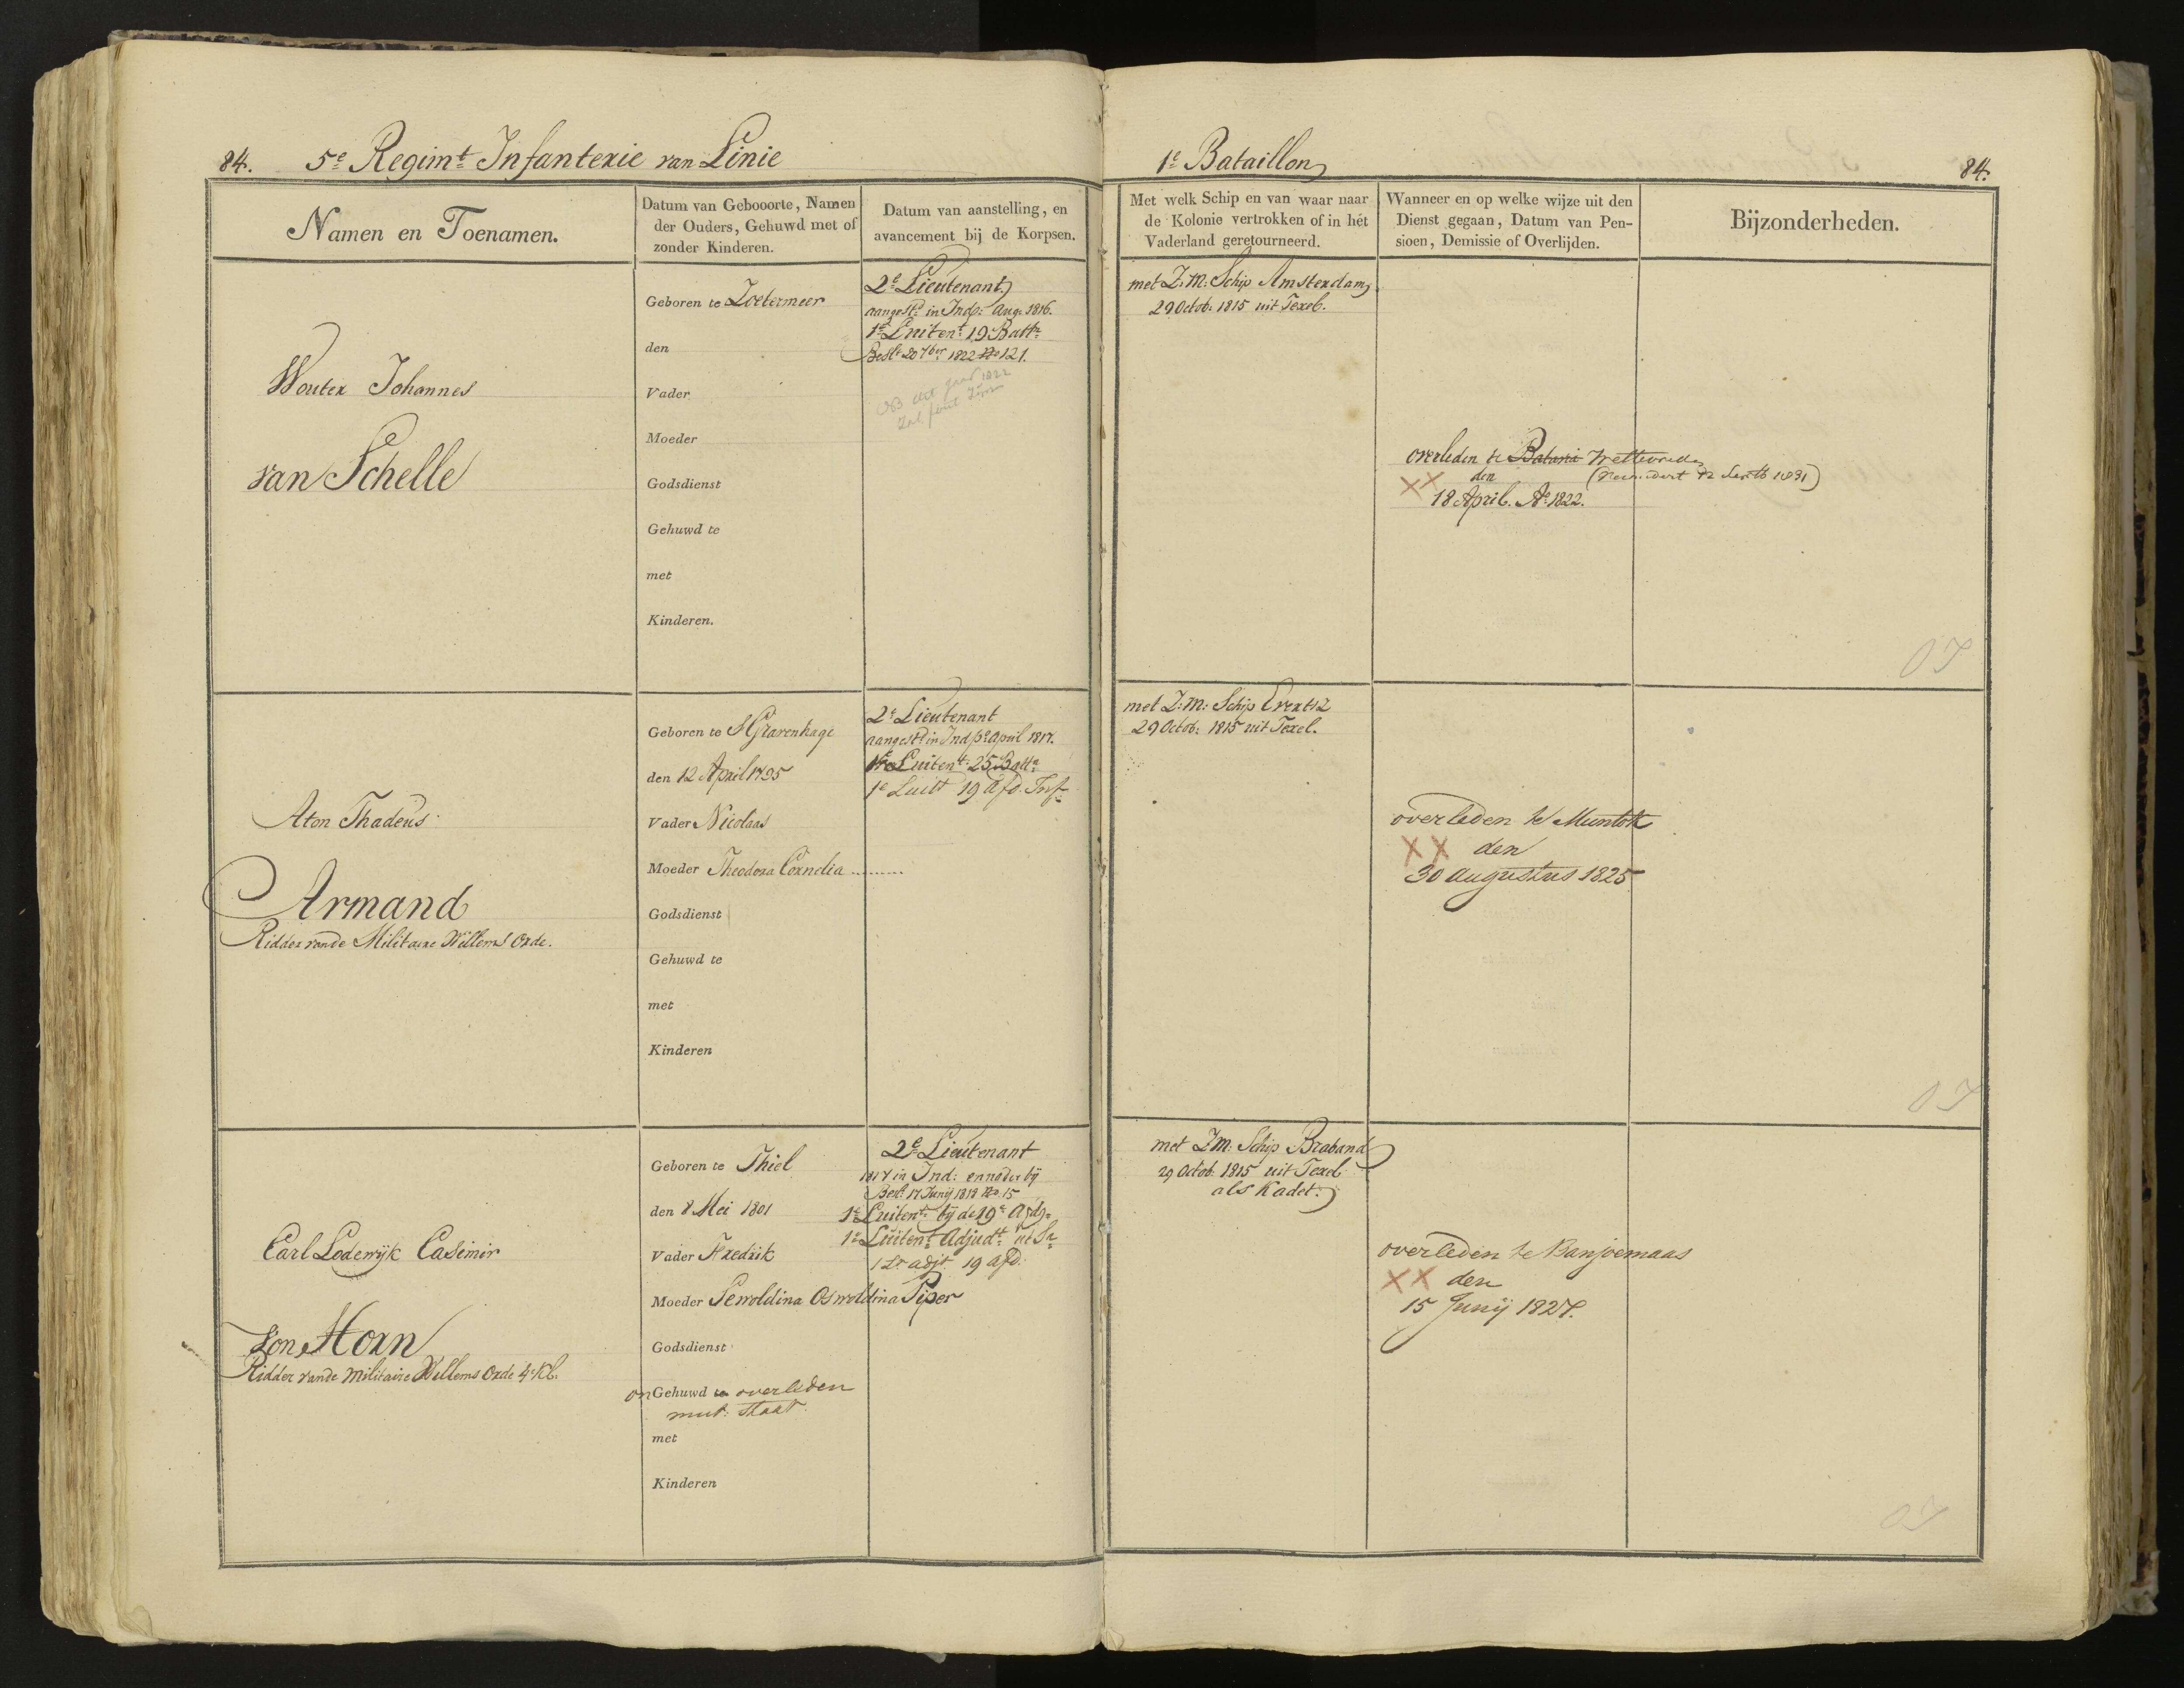 84. 5e Regimt Infanterie van Linie
1e Bataillon 84.
Namen en Toenamen.
Datum van Gebooorte, Namen
der Ouders, Gehuwd met of
zonder Kinderen.
Datum van aanstelling, en
avancement bij de Korpsen.
Met welk Schip en van waar naar
de Kolonie vertrokken of in hét
Vaderland geretourneerd.
Wanneer en op welke wijze uit den
Dienst gegaan, Datum van Pen-
sioen, Demissie of Overlijden.
Bijzonderheden.
Wouter Johannes
van Schelle
Geboren te Zoetermeer
den
Vader
Moeder
Godsdienst
Gehuwd te
met
Kinderen.
2e Lieutenant
aangestd in Indp: Aug. 1816.
1e Luitent 19 Battn
Beslt 20 7ber 1822 No 121.
NB dit jaar 1822
zal fout zijn
met Z:M: Schip Amsterdam
29 Octob: 1815 uit Texel.
overleden te Batavi Weltevrede
den
18 April. Ao 1822.
OI
Aton Thadeus
Armand
Ridder van de Militaire Willems Orde.
Geboren te S'Gravenhage
den 12 April 1795
Vader Nicolaas
Moeder Theodora Cornelia ..........
Godsdienst
Gehuwd te
met
Kinderen
2e Lieutenant
aangestd in Indp: April 1817.
1e Luitent: 25 Battn
1e Luitt 19 Afd. Inf.
met Z:M: Schip Evertz
29 Octob: 1815 uit Texel.
overleden te Muntok
XX den
30 Augustus 1825
OI
Carl Lodewijk Casimir
von Horn
Ridder van de Militaire Willems Orde 4e Kl.
Geboren te Thiel
den 8 Mei 1801
Vader Fredrik
Moeder Sewoldina Oswoldina Piper
Godsdienst
on Gehuwd te overleden
mut: Staat
met
Kinderen
2e Lieutenant
1817 in Ind: en nader bij
Beslt 17 Junij 1818 No 15
1e Luitent bij de 19e Afdg.
1e Luitent Adjudt
1 Lt adjt 19 afd.
met ZM. Schip Braband
29 Octob: 1815 uit Texel
als Kadet.
overleden te Banjoemaas
XX den
15 Junij 1827.
OI